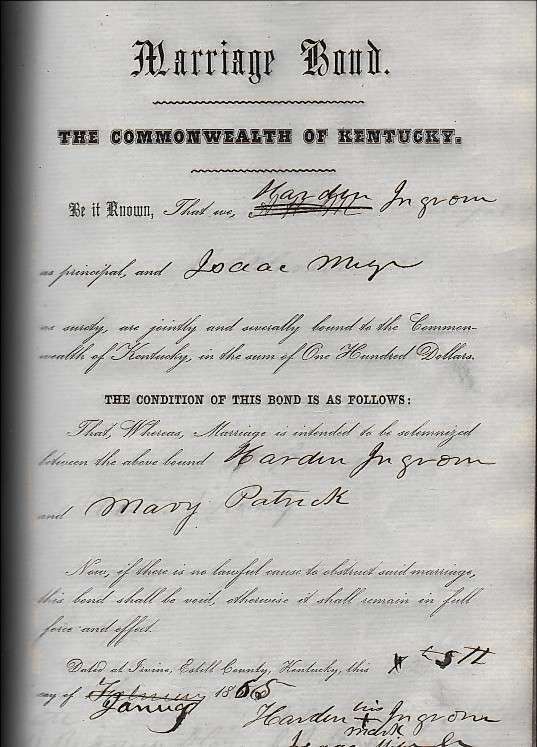 Marriage Bond.
THE COMMONWEALTH OF KENTUCKY.
Be it Known, That we, Hardin Ingrom
as principal, and Isaac
as surety, are jointly and severally bound to the Common-
wealth of Kentucky, in the sum of One Hundred Dollars.
THE CONDITION OF THIS BOND IS AS FOLLOWS:
That, Whereas, Marriage is intended to be solemnized
between the above bound Harden Ingrom
and Mary Patrick
Now, if there is no lawful cause to obstruct said marriage,
this bond shall be void, otherwise it shall remain in full
force and effect.
Dated at Irvine, Estill County, Kentucky, this
day of February 18
Harden his Ingrom
+
mark